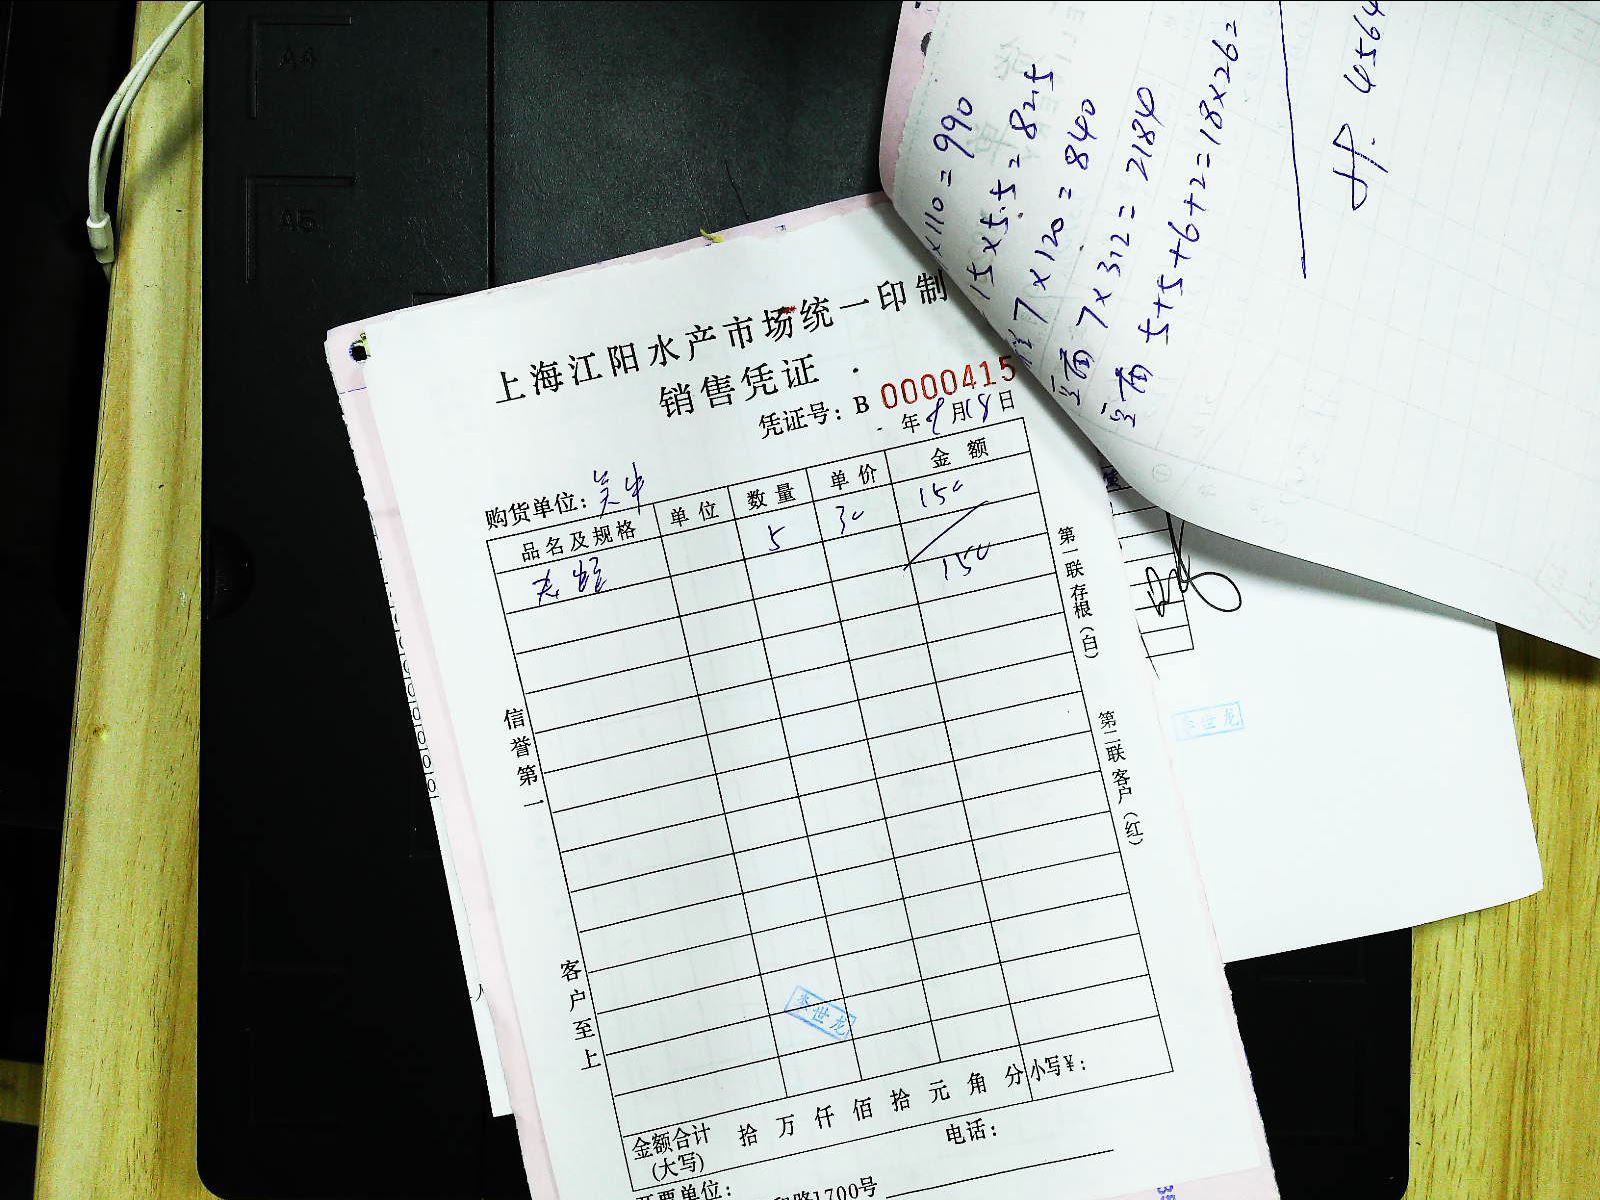 A4
A5
×110=990
15×5.5=82.5
7×120=840
7×312=2184
5+5+6+2=18×26=
4564
上海江阳水产市场统一印制
销售凭证
凭证号：B 0000415
年8月18日
购货单位：
品名及规格 单位 数量 单价 金额
5 30 150
150
第一联存根（白）
第二联客户（红）
信誉第一
客户至上
李世龙
李世龙
金额合计 拾 万 仟 佰 拾 元 角 分 小写¥：
(大写)
电话：
开票单位：
路1700号